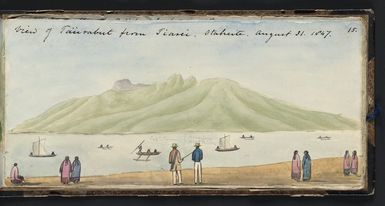 View of Tairabut from Tiarei. Otaheite. August 31. 1847. 15.